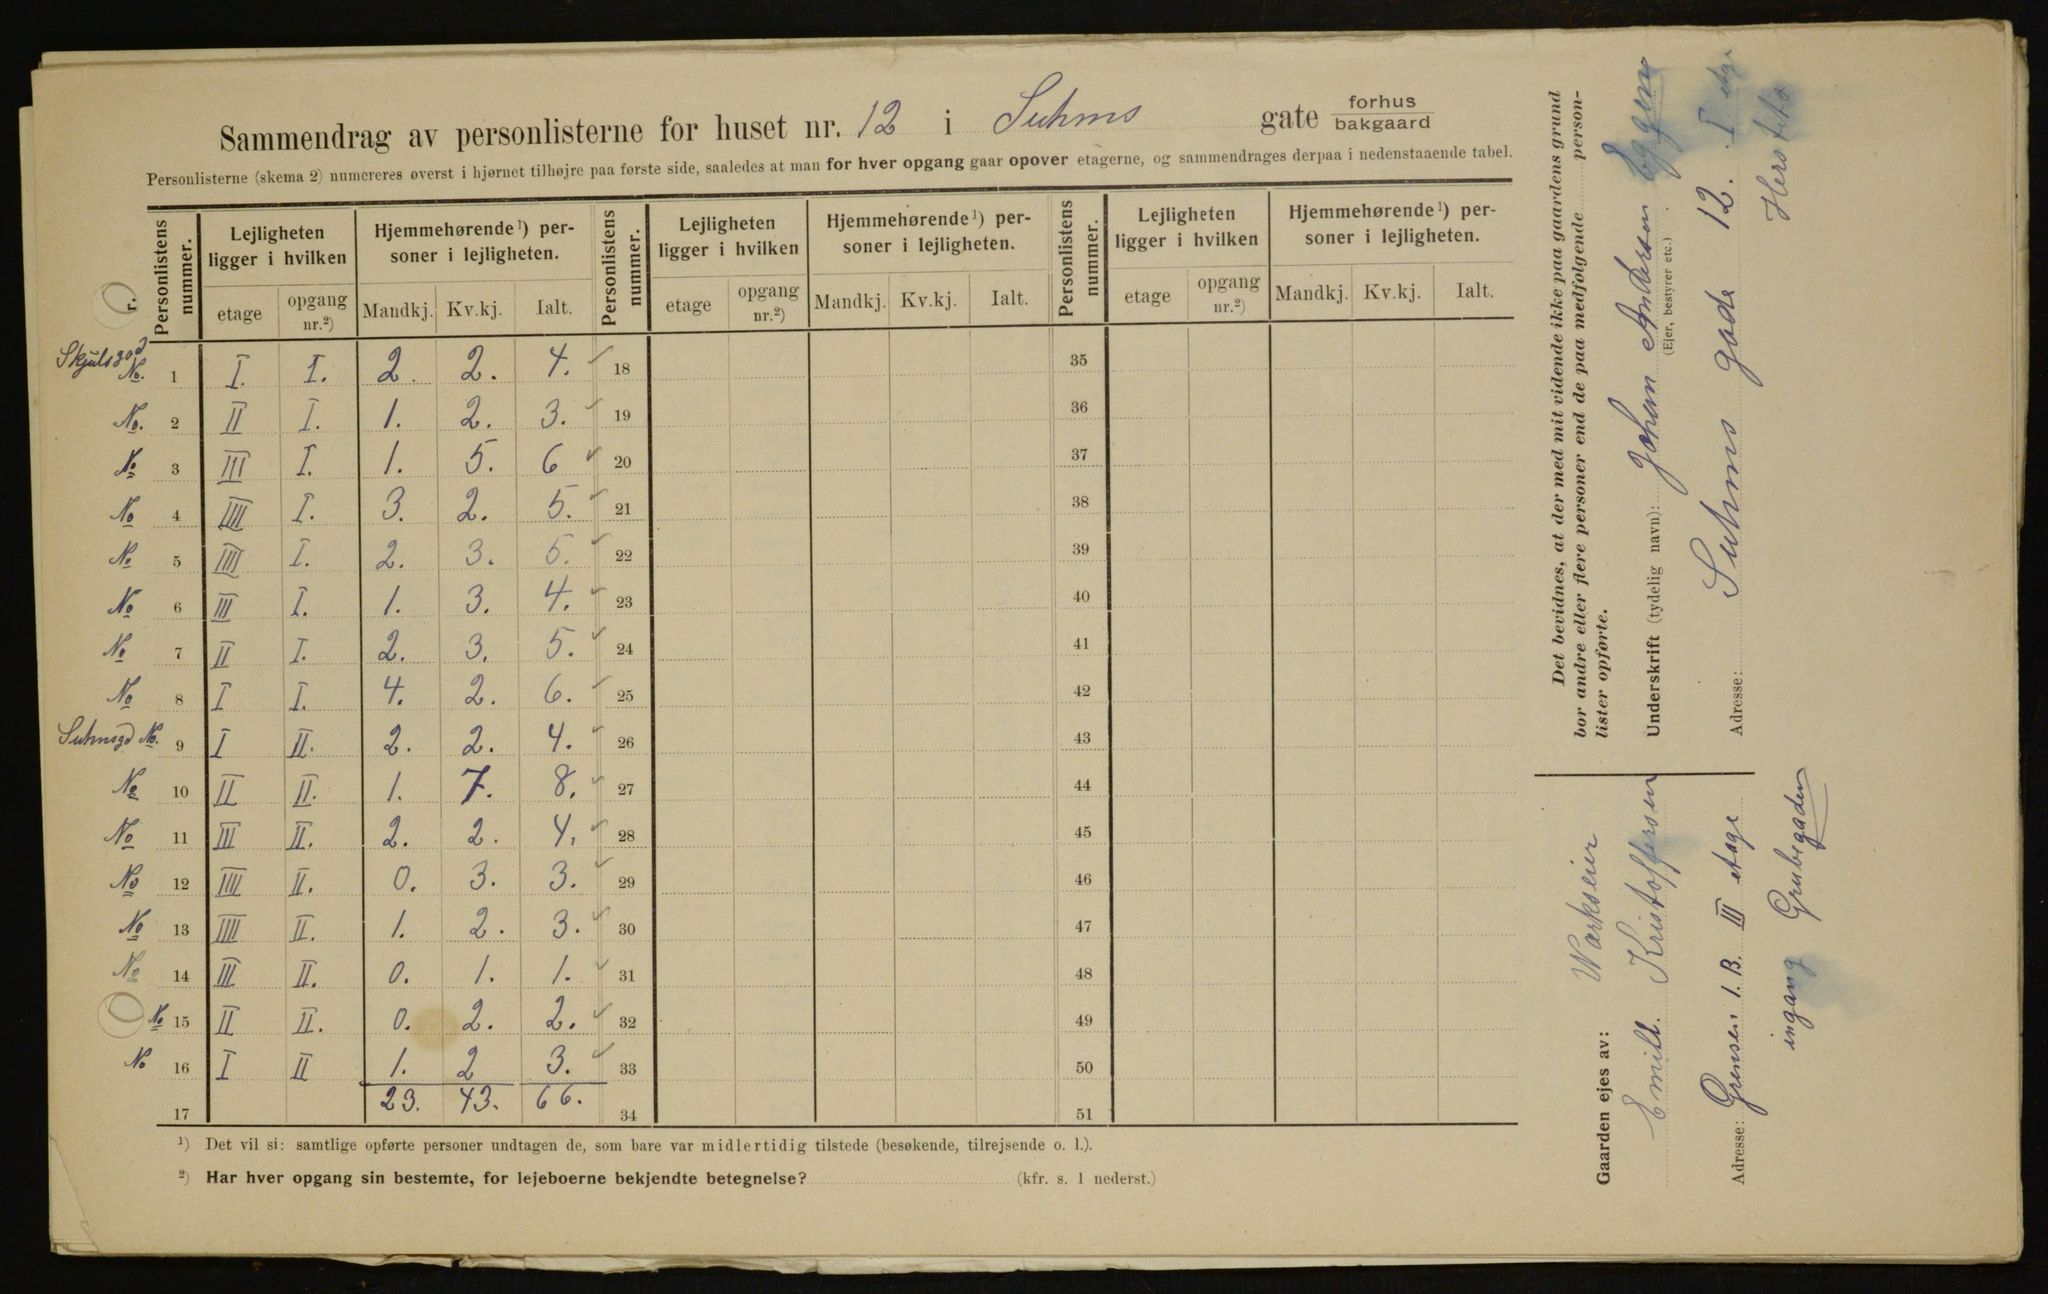 Sammendrag av personlisterne for huset nr. 12 i Suhms gate forhus bakgaard
Personlisterne (skema 2) numereres øverst i hjørnet tilhøjre paa første side, saaledes at man for hver opgang gaar opover etagerne, og sammendrages derpaa i nedenstaaende tabel.
Personlistens nummer. Lejligheten ligger i hvilken Hjemmehørende ¹) personer i lejligheten. Personlistens nummer. Lejligheten ligger i hvilken Hjemmehørende ¹) personer i lejligheten. Personlistens nummer. Lejligheten ligger i hvilken Hjemmehørende ¹) personer i lejligheten.
etage opgang nr.²) Mandkj. Kv.kj. Ialt. etage opgang nr.²) Mandkj. Kv.kj. Ialt. etage opgang nr.²) Mandkj. Kv.kj. Ialt.
No. 1 I. I. 2. 2. 4. 18 35
No. 2 II I. 1. 2. 3. 19 36
No 3 III I. 1. 5. 6 20 37
No 4 IIII I. 3. 2. 5. 21 38
No 5 IIII I. 2. 3. 5. 22 39
No 6 III I. 1. 3. 4. 23 40
No 7 II I. 2. 3. 5. 24 41
No 8 I I. 4. 2. 6. 25 42
Suhmsgd No. 9 I II. 2. 2. 4. 26 43
No 10 II II. 1. 7. 8. 27 44
No 11 III II. 2. 2. 4. 28 45
No 12 IIII II. 0. 3. 3. 29 46
No 13 IIII II. 1. 2. 3. 30 47
No 14 III II. 0. 1. 1. 31 48
No 15 II II. 0. 2. 2. 32 49
No 16 I II 1. 2 3. 33 50
17 23. 43. 66. 34 51
¹) Det vil si: samtlige opførte personer undtagen de, som bare var midlertidig tilstede (besøkende, tilrejsende o. l.).
²) Har hver opgang sin bestemte, for lejeboerne bekjendte betegnelse? (kfr. s. 1 nederst.)
Det bevidnes, at der med mit vidende ikke paa gaardens grund
bor andre eller flere personer end de paa medfølgende personlister opførte.
Underskrift (tydelig navn): Johan Andersen Eggen
(Ejer, bestyrer etc.)
Adresse: Suhms gade 12. I etge
Gaarden ejes av:
Emill. Kristoffersen
Adresse: Grensen 1. B. III etage
ingang Grubegaden